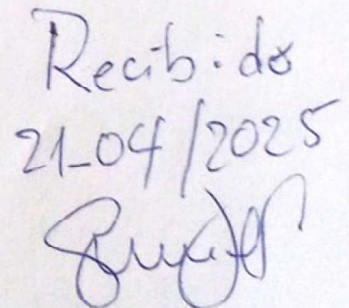 Recibido
21-04/2025